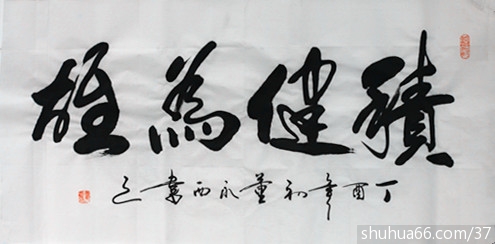 積健為雄
丁酉年初董永西書
shuhua66.com/37